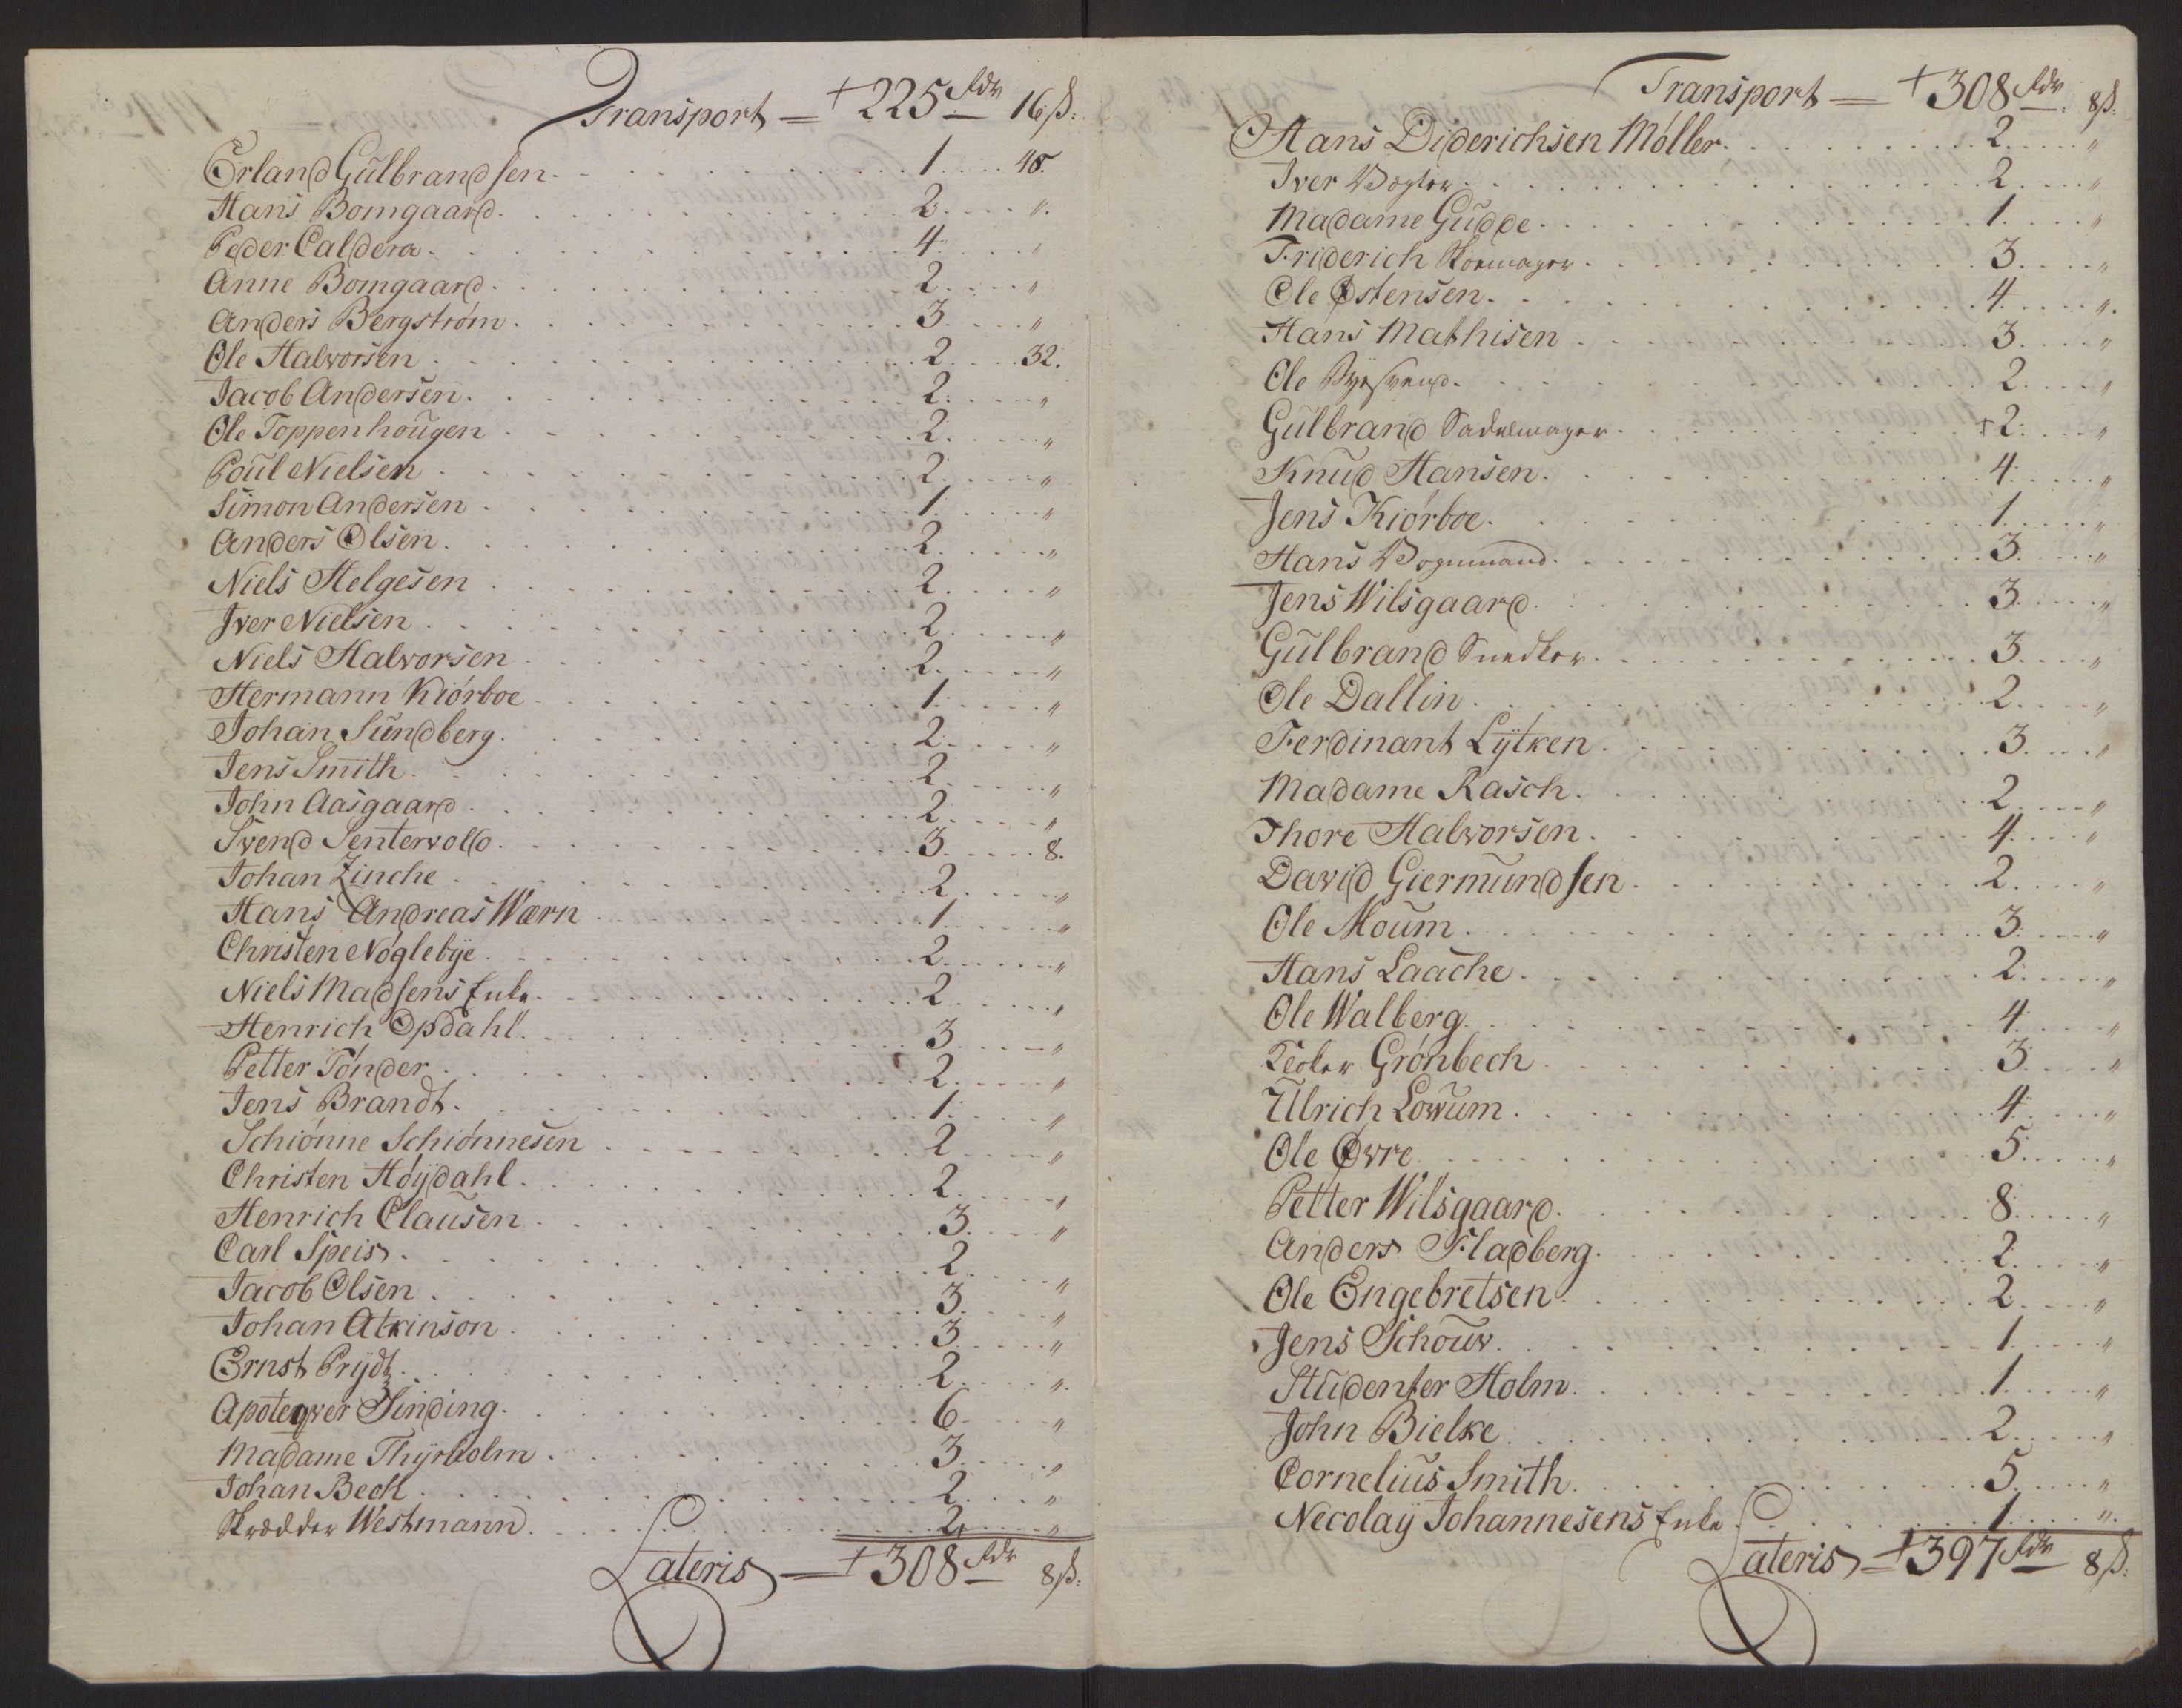 Transport = + 225 Rdr 16 ß:
Erland Gulbrandsen . . . 1 . . 48.
Hans Bomgaard . . . 2 . . "
Peder Caldera . . . 4 . . "
Anne Bomgaard . . . 2 . . "
Anders Bergstróm . . . 3 . . "
Ole Halvorsen . . . 2 . . 32.
Jacob Andersen . . . 2 . . "
Ole Toppenhougen . . . 2 . . "
Poul Nielsen . . . 2 . . "
Simon Andersen . . . 1 . . "
Anders Olsen . . . 2 . . "
Niels Helgesen . . . 2 . . "
Iver Nielsen . . . 2 . . "
Niels Halvorsen . . . 2 . . "
Hermann Kiórboe . . . 1 . . "
Johan Sundberg . . . 2 . . "
Jens Smith . . . 2 . . "
John Aasgaard . . . 2 . . "
Svend Sentervold . . . 3 . . 8.
Johan Zinche . . . 2 . . "
Hans Andreas Wærn . . . 1 . . "
Christen Nóglebÿe . . . 2 . . "
Niels Madsens Enke . . . 2 . . "
Henrich Opdahl . . . 3 . . "
Petter Tónder . . . 2 . . "
Jens Brandt . . . 1 . . "
Schiónne Schiónnesen . . . 2 . . "
Christen Hóÿdahl . . . 2 . . "
Henrich Clausen . . . 3 . . "
Carl Speis . . . 2 . . "
Jacob Olsen . . . 3 . . "
Johan Atkinson . . . 3 . . "
Ernst Prÿdtz . . . 2 . . "
Apoteqver Sinding . . . 6 . . "
Madame Thÿrholm . . . 3 . . "
Johan Beck . . . 2 . . "
Skrædder Westmann . . . 2 . . "
Lateris = + 308 Rdr 8 ß:
Transport = + 308 Rdr 8 ß.
Hans Diderichsen Móller . . . 2 . . "
Iver Vægter . . . 2 . . "
Madame Gudde . . . 1 . . "
Friderich Skoemager . . . 3 . . "
Ole Østensen . . . 4 . . "
Hans Mathisen . . . 3 . . "
Ole Byesvend . . . 2 . . "
Gulbrand Sadelmager . . . + 2 . . "
Knud Hansen . . . 4 . . "
Jens Kiórboe . . . 1 . . "
Hans Vognmand . . . 3 . . "
Jens Wilsgaard . . . 3 . . "
Gulbrand Snedker . . . 3 . . "
Ole Dallin . . . 2 . . "
Ferdinant Lÿtken . . . 3 . . "
Madame Rasch . . . 2 . . "
Thore Halvorsen . . . 4 . . "
David Giermundsen . . . 2 . . "
Ole Moum . . . 3 . . "
Hans Laache . . . 2 . . "
Ole Walberg . . . 4 . . "
Grónbech . . . 3 . . "
Ulrich Lowum . . . 4 . . "
Ole Øvre . . . 5 . . "
Petter Wilsgaard . . . 8 . . "
Anders Fladberg . . . 2 . . "
Ole Engebretsen . . . 2 . . "
Jens Schouw . . . 1 . . "
Studenter Holm . . . 1 . . "
John Bielke . . . 2 . . "
Cornelius Smith . . . 5 . . "
Necolaÿ Johannesens Enke . . . 1 . . "
Lateris = + 397 Rdr 8 ß: